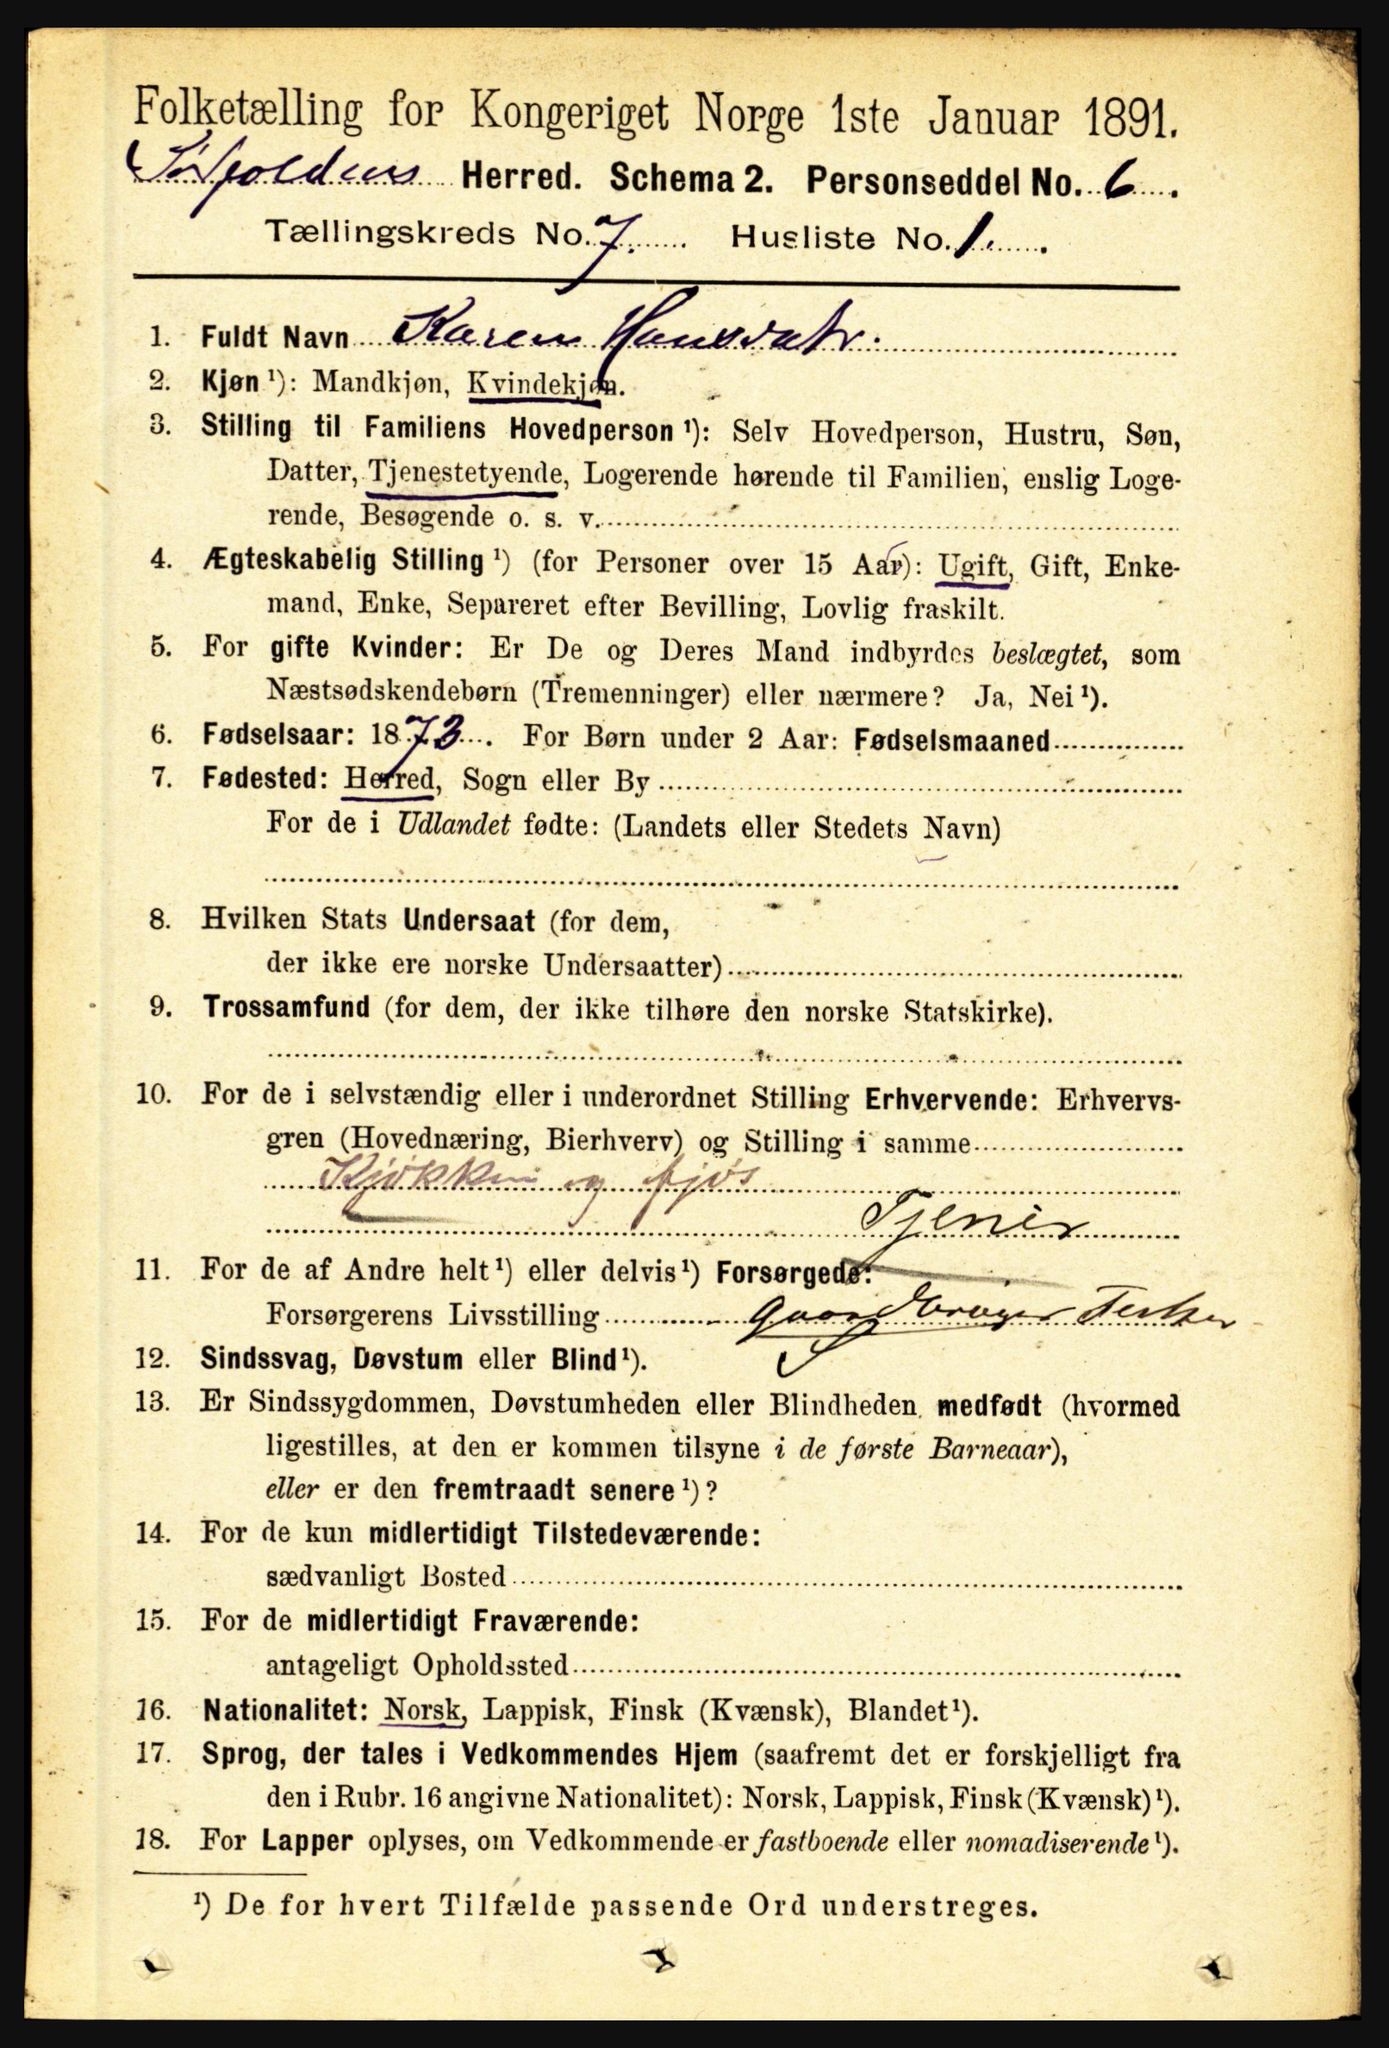 Folketælling for Kongeriget Norge 1ste Januar 1891.
Sørfoldens Herred. Schema 2. Personseddel No. 6.
Tællingskreds No. 7. Husliste No. 1.
1. Fuldt Navn Karen Hansdatr.
2. Kjøn ¹): Mandkjøn, Kvindekjøn.
3. Stilling til Familiens Hovedperson ¹): Selv Hovedperson, Hustru, Søn,
Datter, Tjenestetyende, Logerende hørende til Familien, enslig Loge-
rende, Besøgende o. s. v.
4. Ægteskabelig Stilling ¹) (for Personer over 15 Aar): Ugift, Gift, Enke-
mand, Enke, Separeret efter Bevilling, Lovlig fraskilt.
5. For gifte Kvinder: Er De og Deres Mand indbyrdes beslægtet, som
Næstsødskendebørn (Tremenninger) eller nærmere? Ja, Nei ¹).
6. Fødselsaar: 1873. For Børn under 2 Aar: Fødselsmaaned
7. Fødested: Herred, Sogn eller By
For de i Udlandet fødte: (Landets eller Stedets Navn)
8. Hvilken Stats Undersaat (for dem,
der ikke ere norske Undersaatter)
9. Trossamfund (for dem, der ikke tilhøre den norske Statskirke).
10. For de i selvstændig eller i underordnet Stilling Erhvervende: Erhvervs-
gren (Hovednæring, Bierhverv) og Stilling i samme
Kjøkken og fjøs
Tjener
11. For de af Andre helt ¹) eller delvis ¹) Forsørgede:
Forsørgerens Livsstilling Gaardbruger
12. Sindssvag, Døvstum eller Blind ¹).
13. Er Sindssygdommen, Døvstumheden eller Blindheden medfødt (hvormed
ligestilles, at den er kommen tilsyne i de første Barneaar),
eller er den fremtraadt senere ¹)?
14. For de kun midlertidigt Tilstedeværende:
sædvanligt Bosted
15. For de midlertidigt Fraværende:
antageligt Opholdssted
16. Nationalitet: Norsk, Lappisk, Finsk (Kvænsk), Blandet ¹).
17. Sprog, der tales i Vedkommendes Hjem (saafremt det er forskjelligt fra
den i Rubr. 16 angivne Nationalitet): Norsk, Lappisk, Finsk (Kvænsk) ¹).
18. For Lapper oplyses, om Vedkommende er fastboende eller nomadiserende ¹).
¹) De for hvert Tilfælde passende Ord understreges.